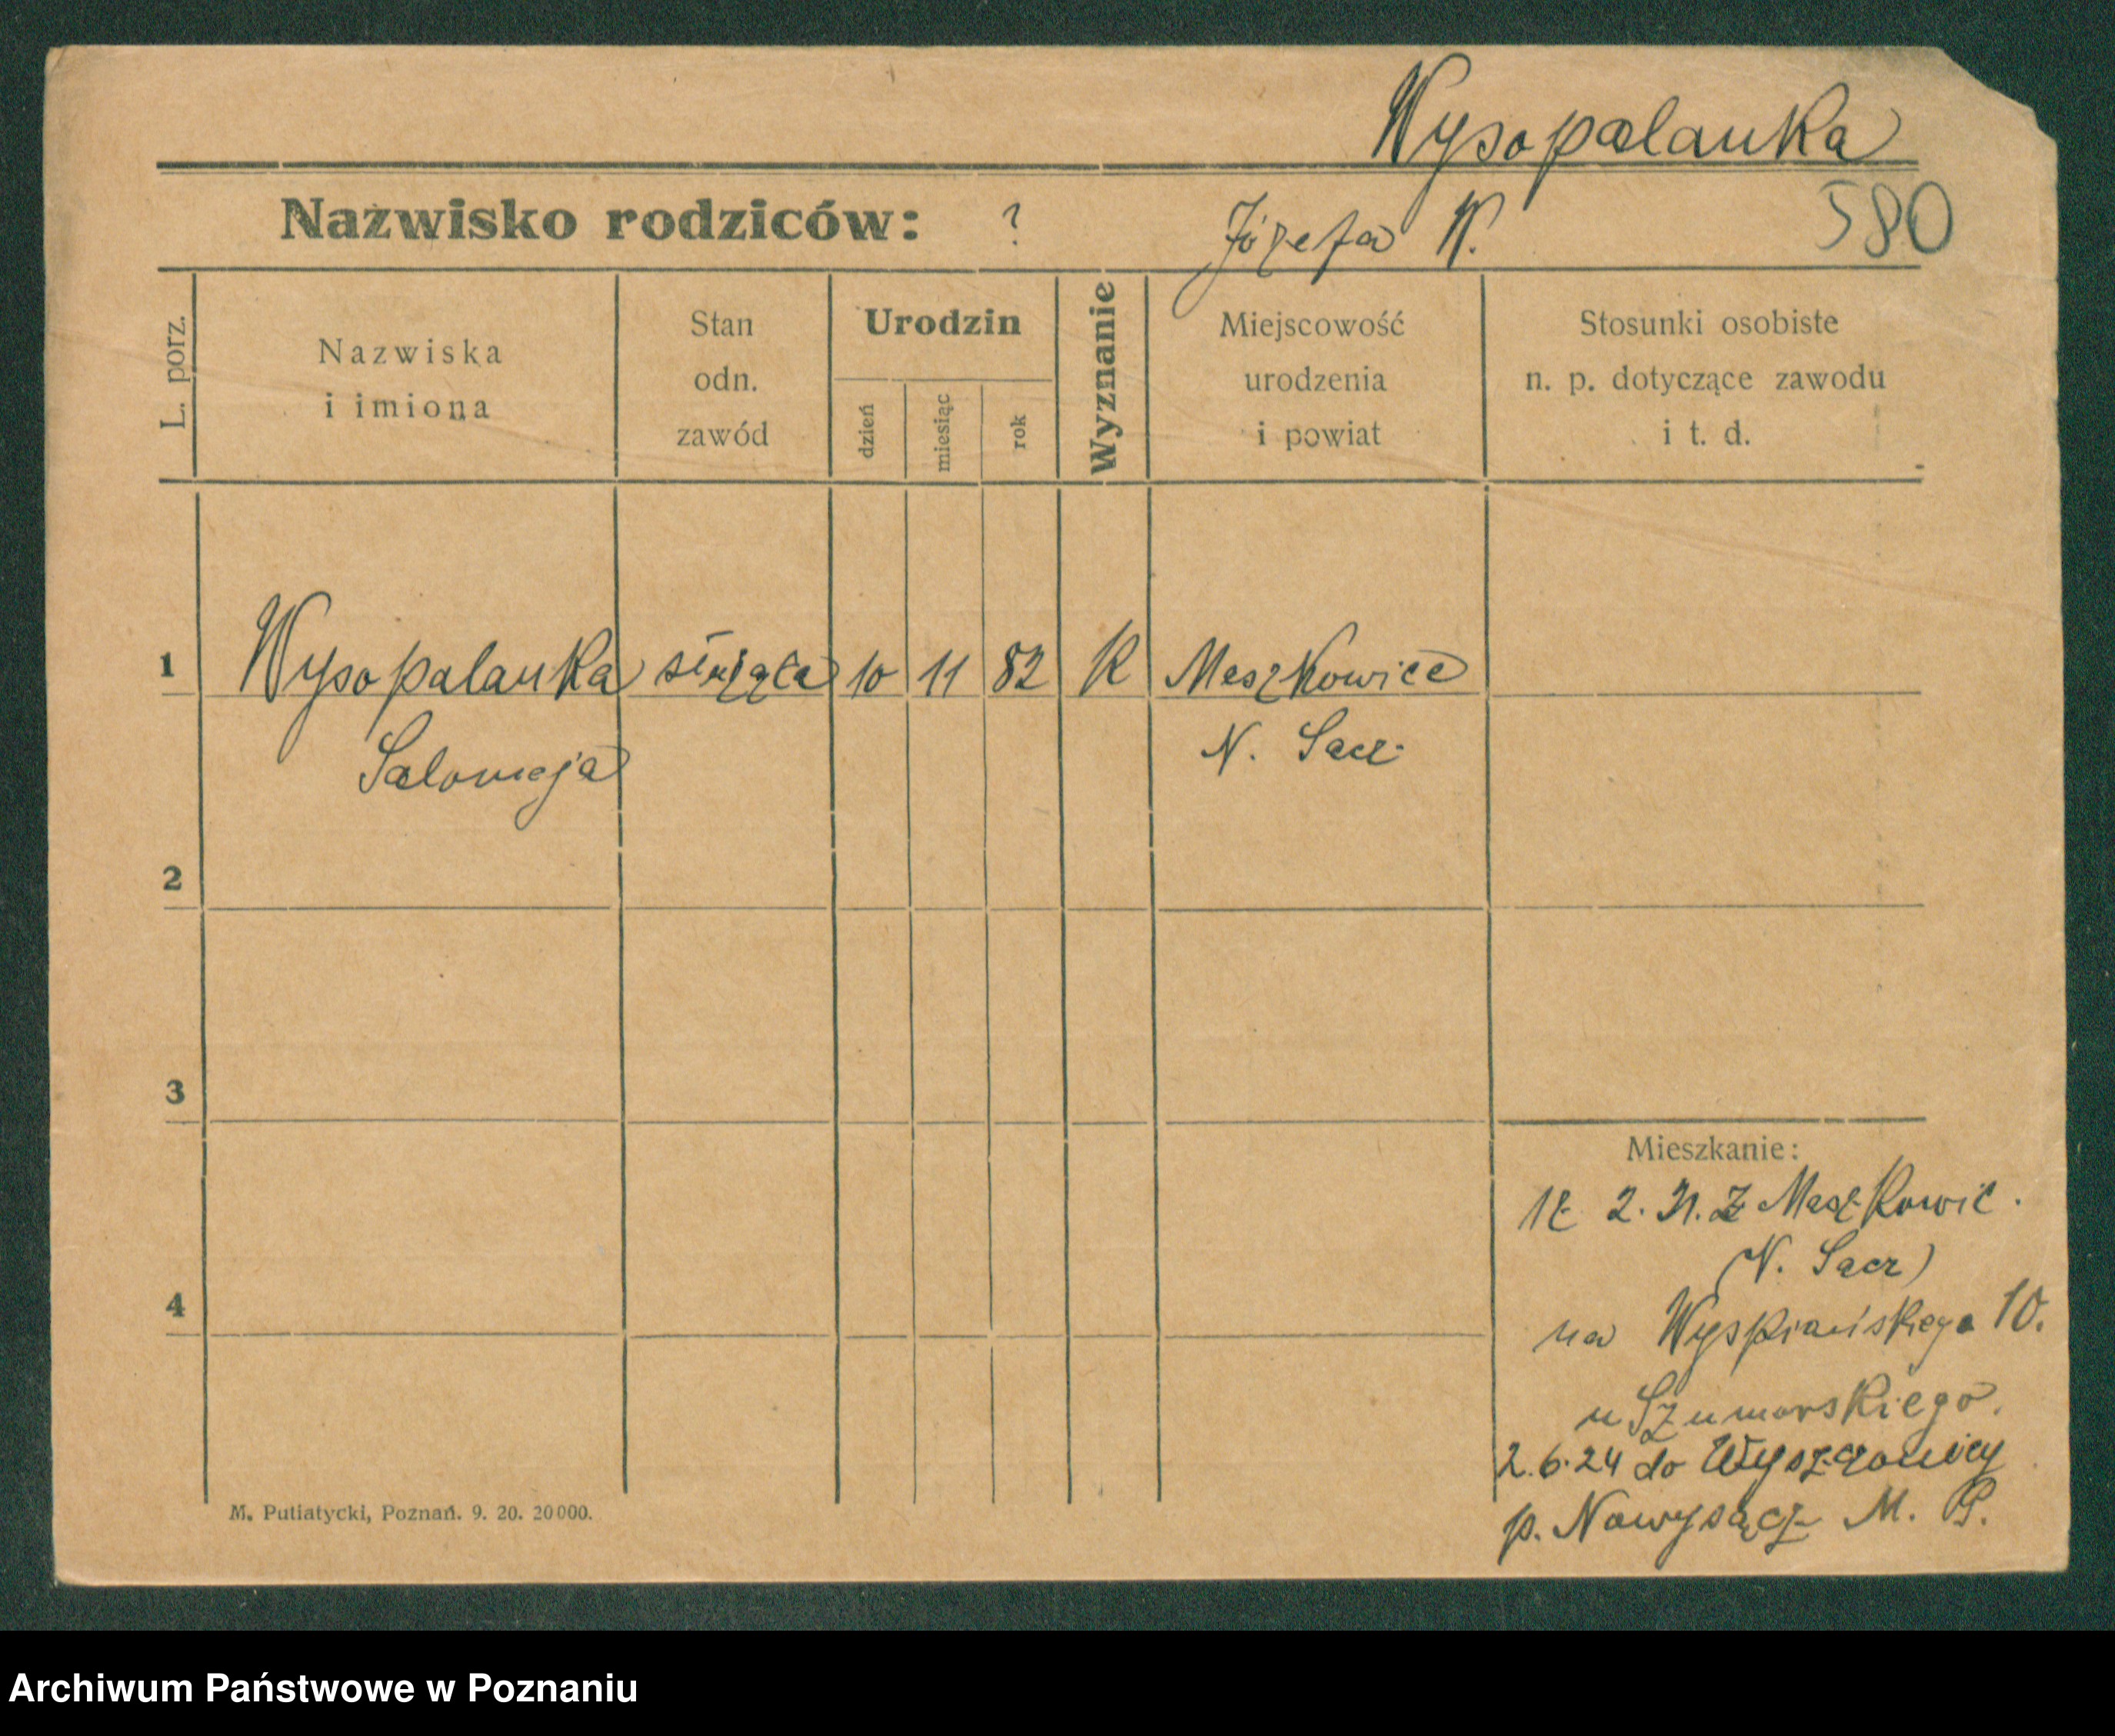 Wysopalanka
Nazwisko rodziców: ? Józefa W. 580
L. porz.
Nazwiska
i imiona
Stan
odn.
zawód
Urodzin
dzień
miesiąc
rok
Wyznanie
Miejscowość
urodzenia
i powiat
Stosunki osobiste
n. p. dotyczące zawodu
i t. d.
1 Wysopalanka służąca 10 11 82 K Maszkowice
Salomeja N. Sącz
2
3
Mieszkanie:
2. 21. z Maszkowic.
(N. Sącz)
4
na Wyspiańskiego 10.
u Szumorskiego.
2.6.24 do
p. Nowysącz M. P.
M. Putiatycki, Poznań. 9. 20. 20000.
Archiwum Państwowe w Poznaniu